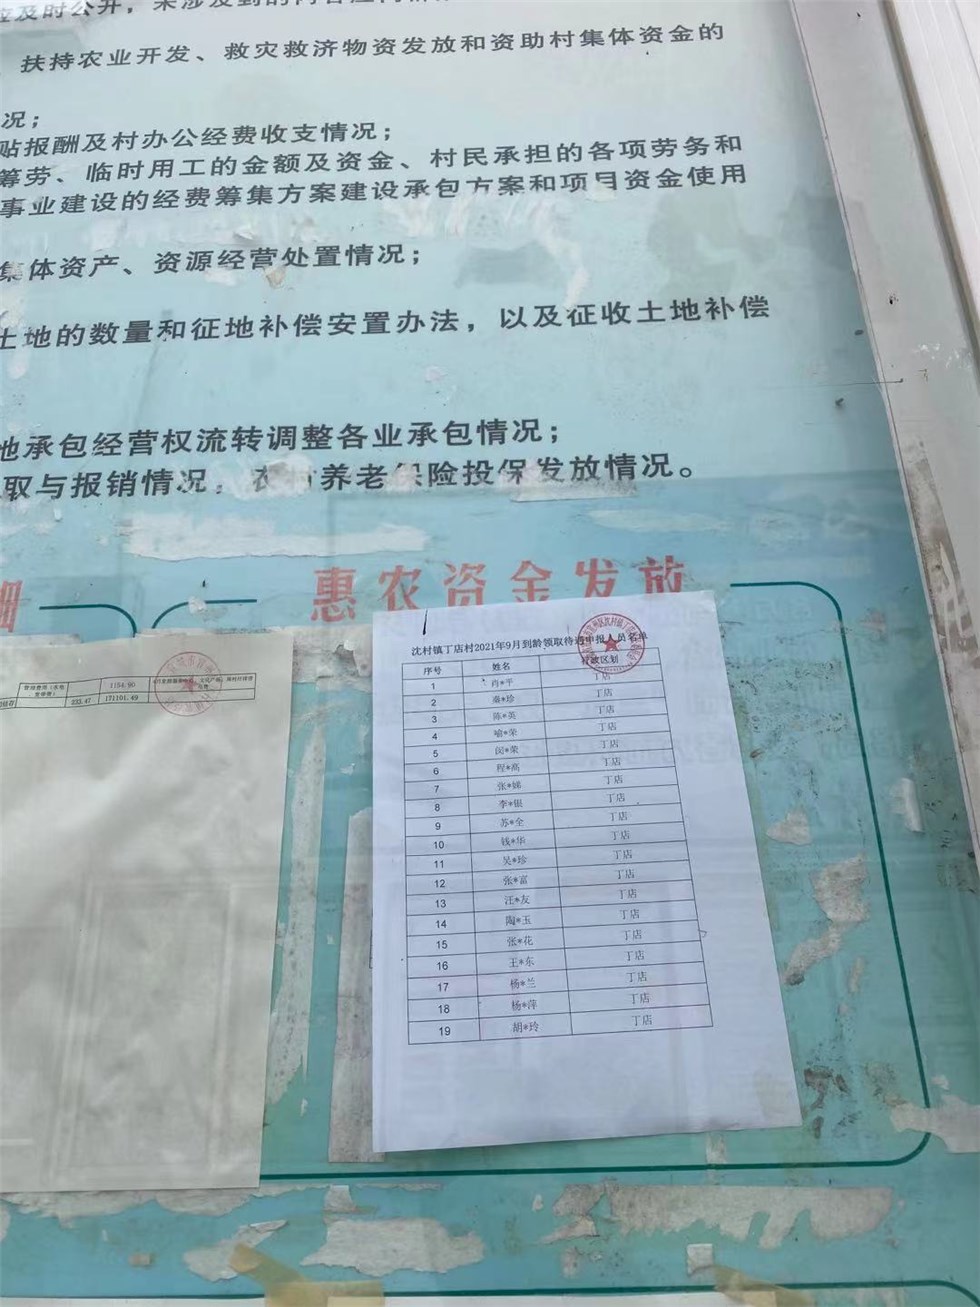 及时公开，未涉及到的内容
扶持农业开发、救灾救济物资发放和资助村集体资金的
况；
贴报酬及村办公经费收支情况；
筹劳、临时用工的金额及资金、村民承担的各项劳务和
事业建设的经费筹集方案建设承包方案和项目资金使用
集体资产、资源经营处置情况；
土地的数量和征地补偿安置办法，以及征收土地补偿
地承包经营权流转调整各业承包情况；
取与报销情况，农村养老保险投保发放情况。
细
惠农资金发放
1184.90
233.47 171101.49
沈村镇丁店村2021年9月到龄领取待遇申报人员名单
序号 姓名 行政区划
1 肖*平 丁店
2 秦*珍 丁店
3 陈*英 丁店
4 喻*荣 丁店
5 闵*荣 丁店
6 程*高 丁店
7 张*娣 丁店
8 李*银 丁店
9 苏*全 丁店
10 钱*华 丁店
11 吴*珍 丁店
12 张*富 丁店
13 汪*友 丁店
14 陶*玉 丁店
15 张*花 丁店
16 王*东 丁店
17 杨*兰 丁店
18 杨*萍 丁店
19 胡*玲 丁店